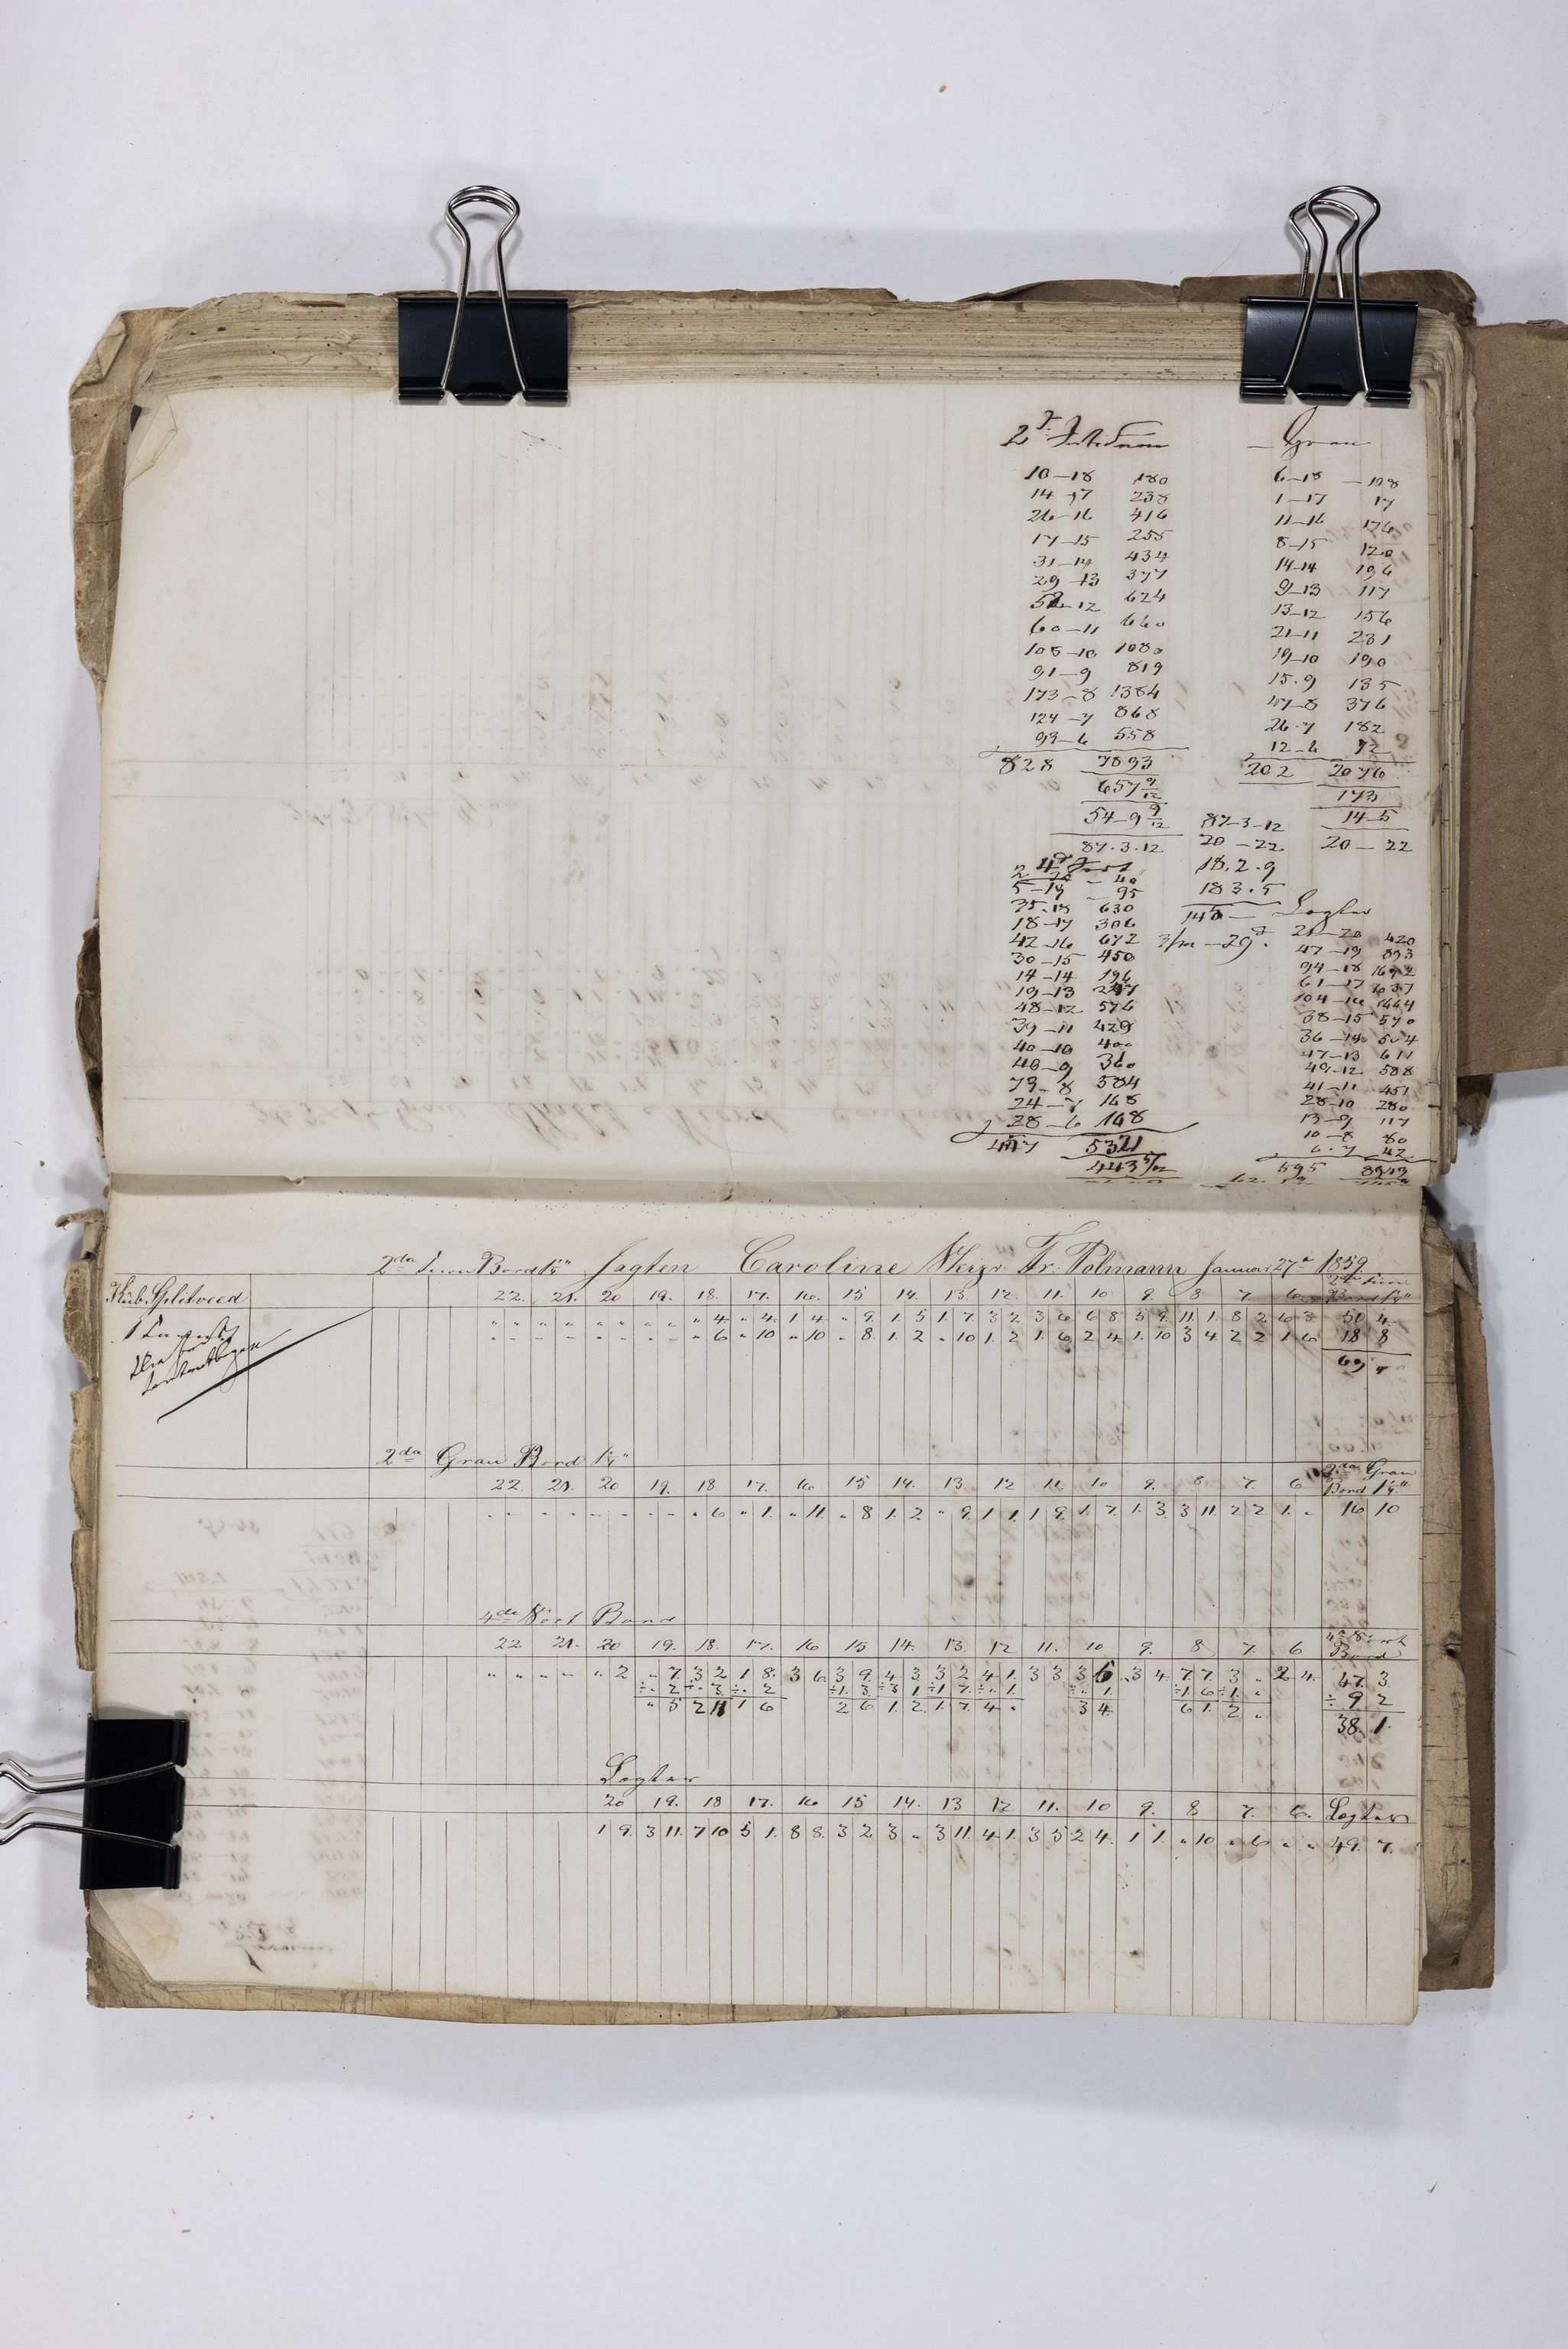 Gran
10-18 180
14-17 238
26-16 416
17-15 255
31-14 434
29-13 377
52-12 624
60-11 660
108-10 1080
91-9 819
173-8 1384
124-7 868
93-6 558
828 7893
657 9/12
54-9 9/12
87.3.12
6-18 -108
1-17 17
11-16 176
8-15 120
14-14 196
9-13 117
13-12 156
21-11 231
19-10 190
15.9 135
47-8 376
26-7 182
12-6 72
202 2076
173
14-5
20-22
87-3-12
20-22
18.2.9
183.5
2 20 - 40
5-19 - 95
35-18 630
18-17 306
42-16 672
30-15 450
14-14 196
19-13 247
48-12 576
39-11 429
40-10 400
40-9 360
73-8 584
24-7 168
28-6 168
5321
443 5/12
Logter
21-20 420
47-19 893
94-18 1692
61-17 1037
104-16 1664
38-15 570
36-14 504
47-13 611
49-12 588
41-11 451
28-10 280
13-9 117
10-8 80
6-7 42
595
2da Bord 1¼" Jagten Caroline Skipr. Fr. Polmann Januar 27de 1859
Kub. Splitveed
22. 21. 20 19. 18. 17. 16. 15 14. 13. 12. 11. 10 9. 8 7. 6. Bord 1¼"
" " " " " " " " " 4 " 4. 1. 4 " 9. 1. 5 1. 7. 3 2 3 6 6 8 5 9. 11. 1 8 2 6 3 50 4
" " " " " " " " " 6 " 10 " 10 " 8. 1. 2 " 10 1. 2 1. 6 2 4 1. 10 3 4 2 2 1 6 18 8
69
2da Gran Bord 1¼"
22. 21. 20 19. 18 17. 16 15 14. 13. 12 11. 10 9. 8 7. 6 2da Gran Bord 1¼"
" " " " " " " " " 6 " 1. " 11. " 8 1. 2 " 9. 1 1 1 9. 1 7. 1. 3. 3 11. 2 2 1. " 16 10
4de Bord
22 21. 20 19. 18. 17. 16 15 14. 13. 12 11. 10 9. 8 7. 6 Bord
" " " " " 2 " 7. 3 2 1 8. 3 6 3 9. 4 3 3 2 4 1. 3 3 3 5 3 4 7 7. 3 " 2 4. 47. 3.
÷ " 2 ÷ " 3. ÷ " 2 ÷ 1. 3. ÷ 3 1 ÷ 1 7. ÷ " 1. ÷ " 1. ÷ 1. 6 ÷ 1. " ÷ 9 2
" 5 2 11 1 6 2 6 1. 2 1. 7. 4 " 3 4. 6 1. 2 " 38. 1.
Logter
20 19. 18 17. 16 15 14. 13 12 11. 10 9. 8 7. 6. Logter
1 9. 3 11. 7 10 5 1. 8 8. 3 2 3 " 3 11. 4 1. 3 5 2 4. 1 1. " 10 " 6 " " 49. 7.